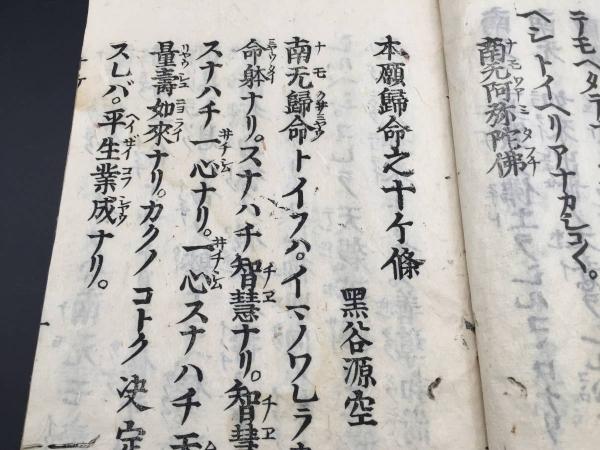 テモヘタテ
ヘシトイヘリアナカシコ〱。
南无阿弥陀佛
本願歸命之十ケ條
黑谷源空
南无歸命トイフハ。イマノワレラカ
命躰ナリ。スナハチ智慧ナリ。智慧
スナハチ一心ナリ。一心スナハチ无
量壽如來ナリ。カクノコトク決定
スレバ。平生業成ナリ。